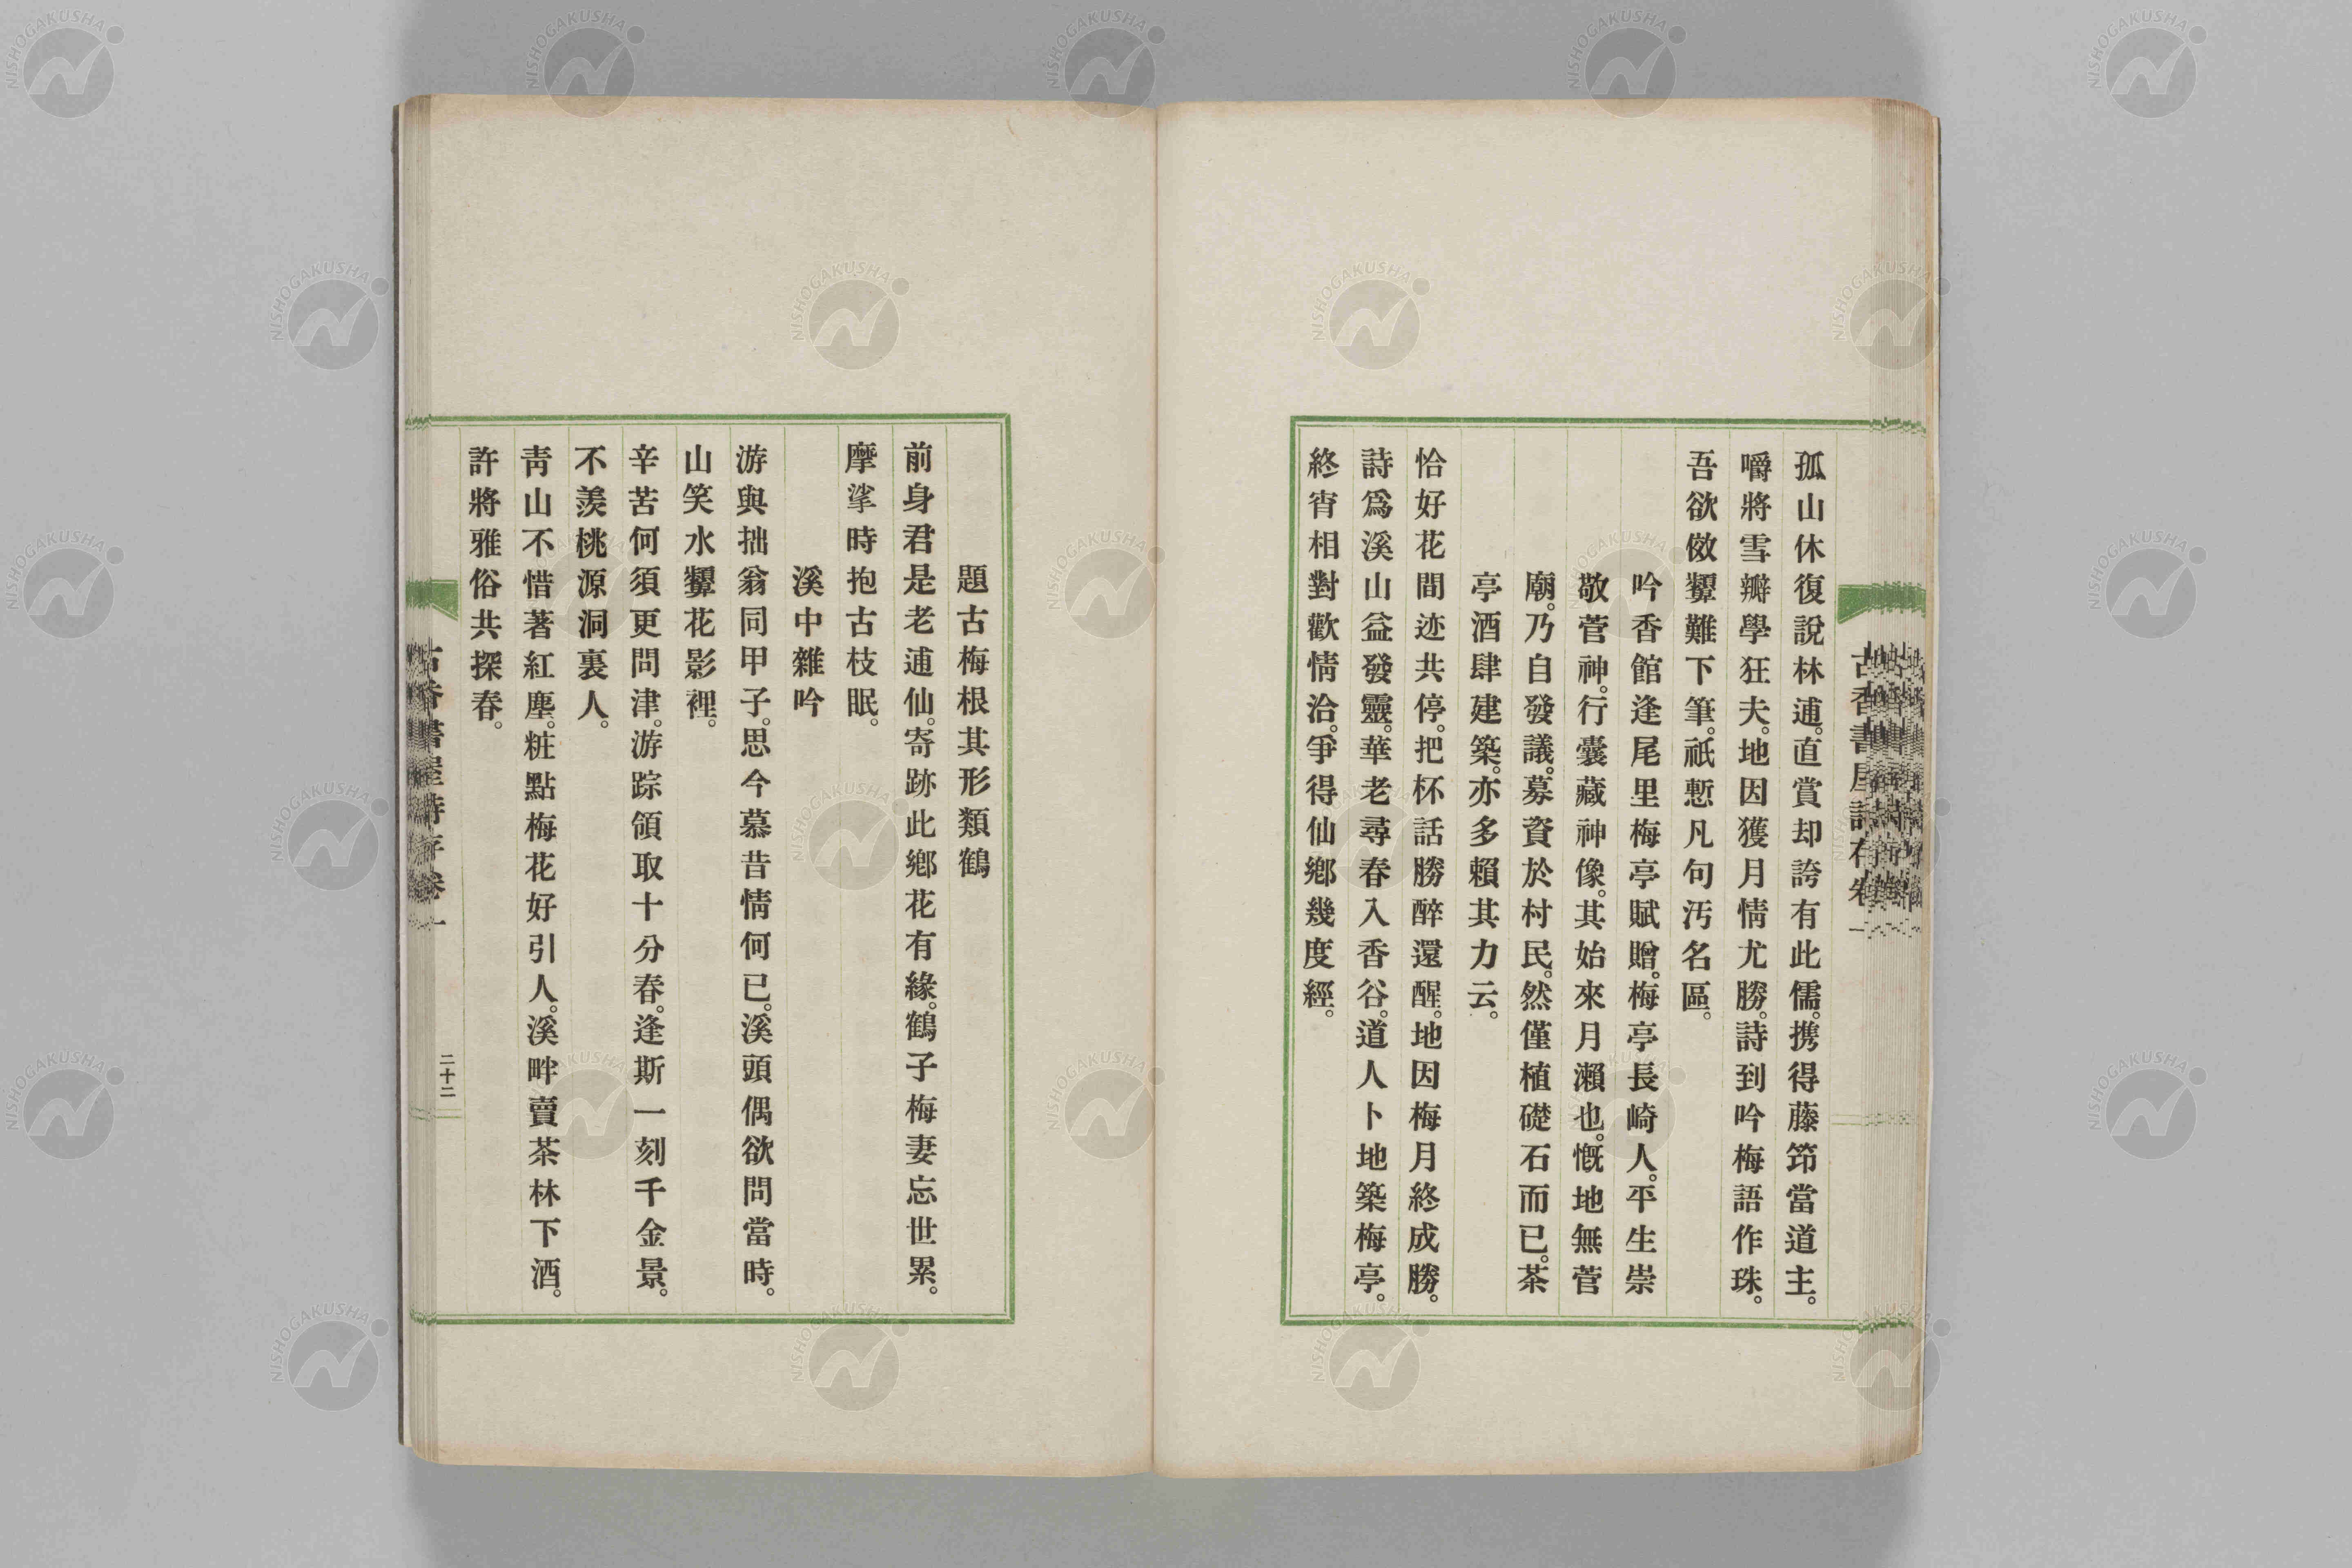 孤山休復說林逋。直賞却誇有此儒。携得藤笻當道主。
嚼將雪瓣學狂夫。地因獲月情尤勝。詩到吟梅語作珠。
吾欲倣顰難下筆。祇慙凡句汚名區。
吟香館逢尾里梅亭賦贈。梅亭長崎人。平生崇
敬菅神。行囊藏神像。其始來月瀨也。慨地無菅
廟。乃自發議。募資於村民。然僅植礎石而已。茶
亭酒肆建築。亦多賴其力云。
恰好花間迹共停。把杯話勝醉還醒。地因梅月終成勝。
詩爲溪山益發靈。華老尋春入香谷。道人卜地築梅亭。
終宵相對歡情洽。爭得仙鄉幾度經。
題古梅根其形類鶴
前身君是老逋仙。寄跡此鄉花有緣。鶴子梅妻忘世累。
摩挲時抱古枝眠。
溪中雜吟
游與拙翁同甲子。思今慕昔情何已。溪頭偶欲問當時。
山笑水顰花影裡。
辛苦何須更問津。游踪領取十分春。逢斯一刻千金景。
不羨桃源洞裏人。
靑山不惜著紅塵。粧點梅花好引人。溪畔賣茶林下酒。
許將雅俗共探春。
二十二
NISHOGAKUSHA